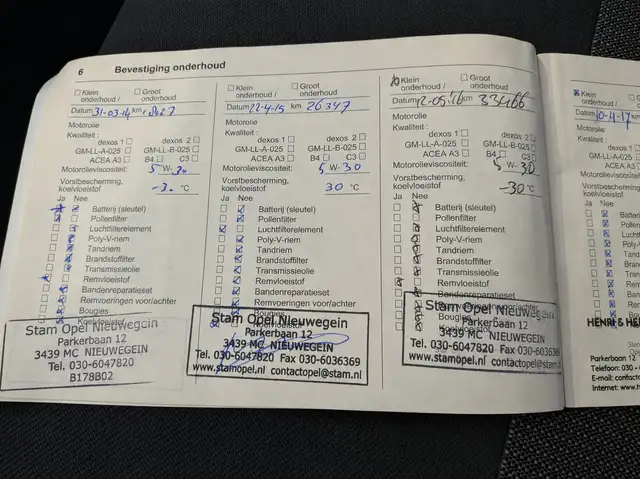 6 Bevestiging onderhoud
Klein onderhoud / Groot onderhoud
Datum 31-03-14 km
Motorolie
Kwaliteit :
dexos 1 dexos 2
GM-LL-A-025 GM-LL-B-025
ACEA A3 B4 C3
Motorolieviscositeit: 5 W-30
Vorstbescherming, koelvloeistof °C
Ja Nee
Batterij (sleutel)
Pollenfilter
Luchtfilterelement
Poly-V-riem
Tandriem
Brandstoffilter
Transmissieolie
Remvloeistof
Bandenreparatieset
Remvoeringen voor/achter
Bougies
Koelvloeistof
Stam Opel Nieuwegein
Parkerbaan 12
3439 MC NIEUWEGEIN
Tel. 030-6047820
B178B02
Klein onderhoud / Groot onderhoud
Datum 22-4-15 km 26347
Motorolie
Kwaliteit :
dexos 1 dexos 2
GM-LL-A-025 GM-LL-B-025
ACEA A3 B4 C3
Motorolieviscositeit: 5 W-30
Vorstbescherming, koelvloeistof 30 °C
Ja Nee
Batterij (sleutel)
Pollenfilter
Luchtfilterelement
Poly-V-riem
Tandriem
Brandstoffilter
Transmissieolie
Remvloeistof
Bandenreparatieset
Remvoeringen voor/achter
Bougies
Koelvloeistof
Stam Opel Nieuwegein
Parkerbaan 12
3439 MC NIEUWEGEIN
Tel. 030-6047820 Fax 030-6036369
www.stamopel.nl contactopel@stam.nl
Klein onderhoud / Groot onderhoud
Datum km
Motorolie
Kwaliteit :
dexos 1 dexos 2
GM-LL-A-025 GM-LL-B-025
ACEA A3 B4 C3
Motorolieviscositeit: 5 W-30
Vorstbescherming, koelvloeistof -30 °C
Ja Nee
Batterij (sleutel)
Pollenfilter
Luchtfilterelement
Poly-V-riem
Tandriem
Brandstoffilter
Transmissieolie
Remvloeistof
Bandenreparatieset
Remvoeringen voor/achter
Bougies
Koelvloeistof
Stam Opel Nieuwegein
Parkerbaan 12
3439 MC NIEUWEGEIN
Tel. 030-6047820 Fax 030-6036
www.stamopel.nl contactopel@sta
Klein onderhoud /
Datum 10-4-17
Motorolie
Kwaliteit :
GM-LL-A-0
ACEA A3
Motorolievisco
Vorstbescherm
koelvloeistof
Ja Nee
HENRI & HE
Parkerbaan 12
Telefoon: 030 -
E-mail: contacto
Internet: www.h